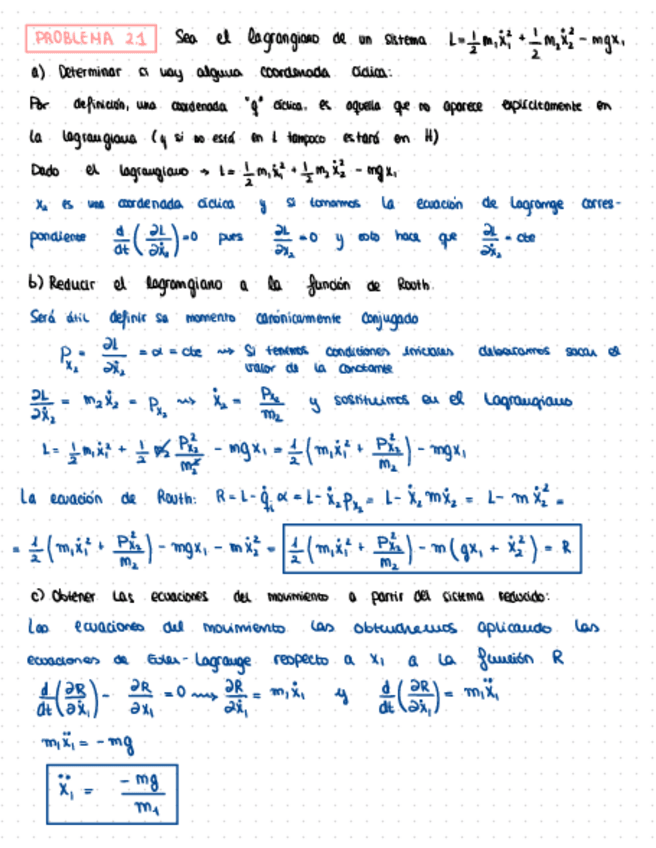 PROBLEMA 2.1 Sea el lagrangiano de un sistema L=½m₁ẋ₁²+½m₂ẋ₂²-mgx₁
a) Determinar si hay alguna coordenada cíclica:
Por definición, una coordenada "q" cíclica, es aquella que no aparece explícitamente en
la lagrangiana (y si no está en L tampoco estará en H)
Dado el lagrangiano → L=½m₁ẋ₁²+½m₂ẋ₂²-mgx₁
x₂ es una coordenada cíclica y si tomamos la ecuación de Lagrange corres-
pondiente d/dt(∂L/∂ẋ₂)=0 pues ∂L/∂x₂=0 y esto hace que ∂L/∂ẋ₂=cte
b) Reducir el lagrangiano a la función de Routh.
Será útil definir su momento canónicamente conjugado
Pₓ₂=∂L/∂ẋ₂=α=cte ⇝ Si tenemos condiciones iniciales deberíamos sacar el
valor de la constante
∂L/∂ẋ₂=m₂ẋ₂=Pₓ₂ ⇝ ẋ₂=Pₓ₂/m₂ y sustituimos en el Lagrangiano
L=½m₁ẋ₁²+½m₂Pₓ₂²/m₂²-mgx₁=½(m₁ẋ₁²+Pₓ₂²/m₂)-mgx₁
La ecuación de Routh: R=L-q̇ᵢα=L-ẋ₂pₓ₂=L-ẋ₂mẋ₂=L-mẋ₂²=
=½(m₁ẋ₁²+Pₓ₂²/m₂)-mgx₁-mẋ₂²=½(m₁ẋ₁²+Pₓ₂²/m₂)-m(gx₁+ẋ₂²)=R
c) Obtener las ecuaciones del movimiento a partir del sistema reducido:
Las ecuaciones del movimiento las obtendremos aplicando las
ecuaciones de Euler-Lagrange respecto a x₁ a la función R
d/dt(∂R/∂ẋ₁)-∂R/∂x₁=0 ⇝ ∂R/∂ẋ₁=m₁ẋ₁ y d/dt(∂R/∂ẋ₁)=m₁ẍ₁
m₁ẍ₁=-mg
ẍ₁=-mg/m₁